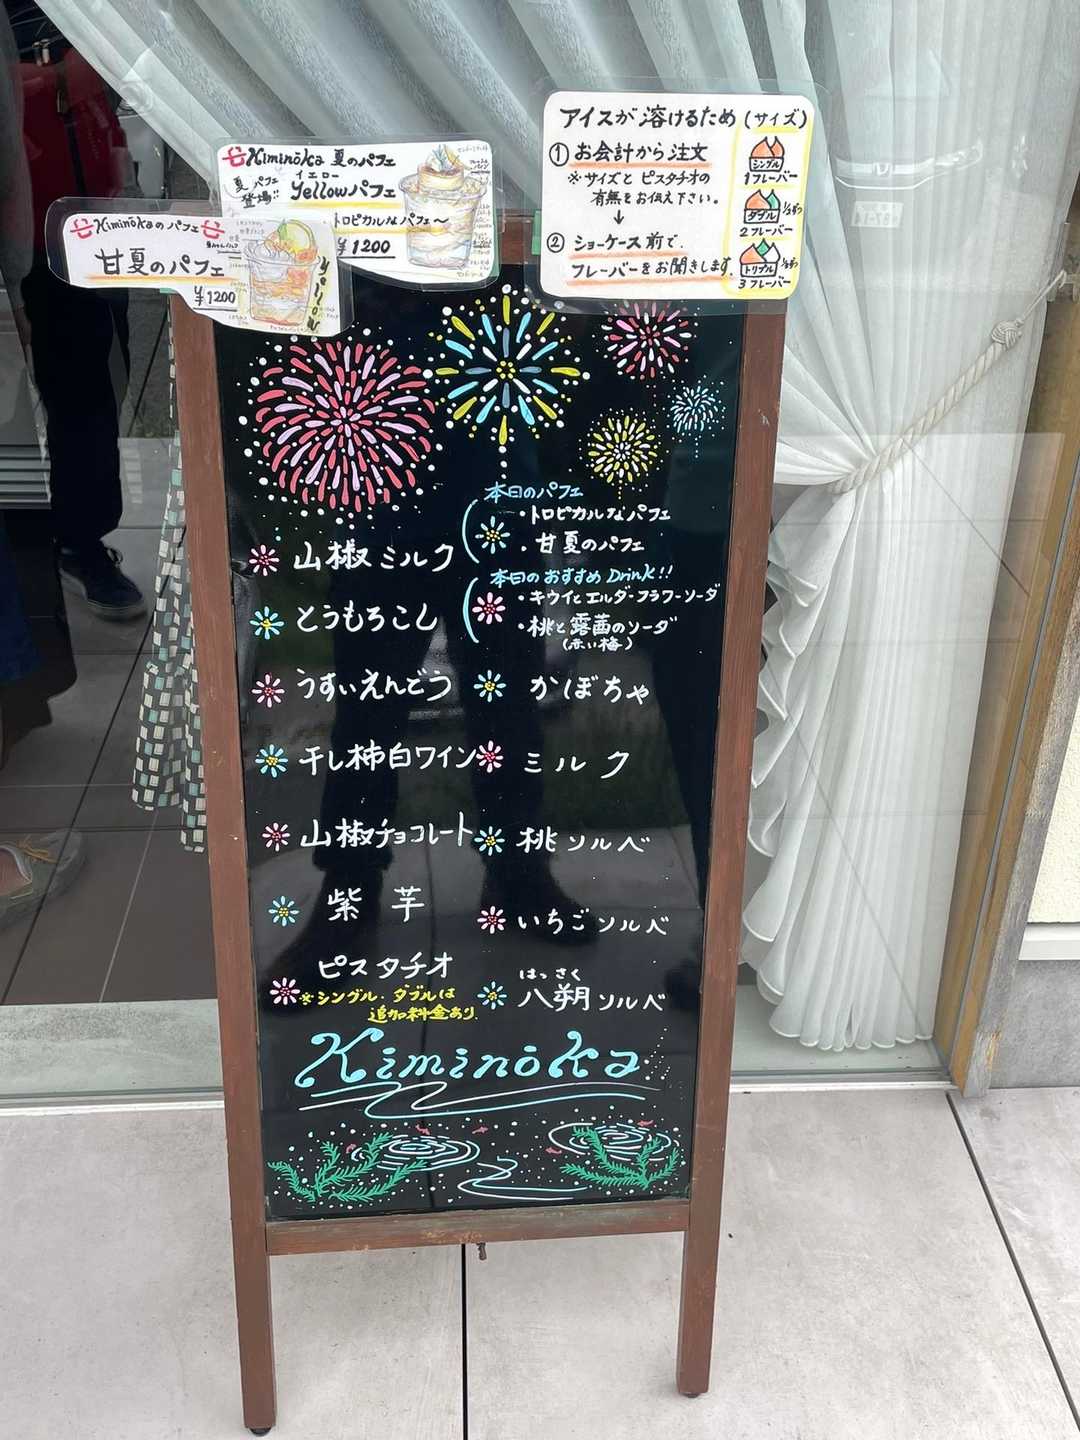 Kiminōka 夏のパフェ
夏パフェ登場!!
イエロー
Yellowパフェ
トロピカルなパフェ〜
¥1200
Kiminōkaのパフェ
甘夏のパフェ
¥1200
アイスが溶けるため (サイズ)
① お会計から注文
※サイズと ピスタチオの
有無をお伝え下さい。
↓
② ショーケース前で、
フレーバーをお聞きします。
シングル
1フレーバー
ダブル
2フレーバー
トリプル
3フレーバー
本日のパフェ
・トロピカルなパフェ
・甘夏のパフェ
本日のおすすめ Drink!!
・キウイとエルダーフラワーソーダ
・桃と露茜のソーダ
(赤い梅)
山椒ミルク
とうもろこし
うすいえんどう
干し柿白ワイン
山椒チョコレート
紫芋
ピスタチオ
※シングル、ダブルは
追加料金あり、
かぼちゃ
ミルク
桃ソルベ
いちごソルベ
はっさく
八朔ソルベ
Kiminōka